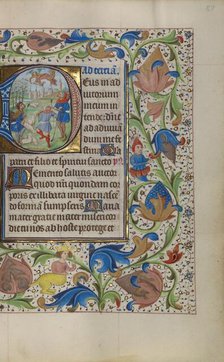 Ad terciā.
Deus in ad
iutorium
meum in
tende. Dñe
ad adiuuā
dum me fe
stina. Gloria
patri et filio et spiritui sancto
Memento salutis auctor
quod nr̄i quondam cor
poris ex illibata uirgine nasce
do formā sumpseris. Maria
mater gratie mater misericordie
tu nos ab hoste protege et